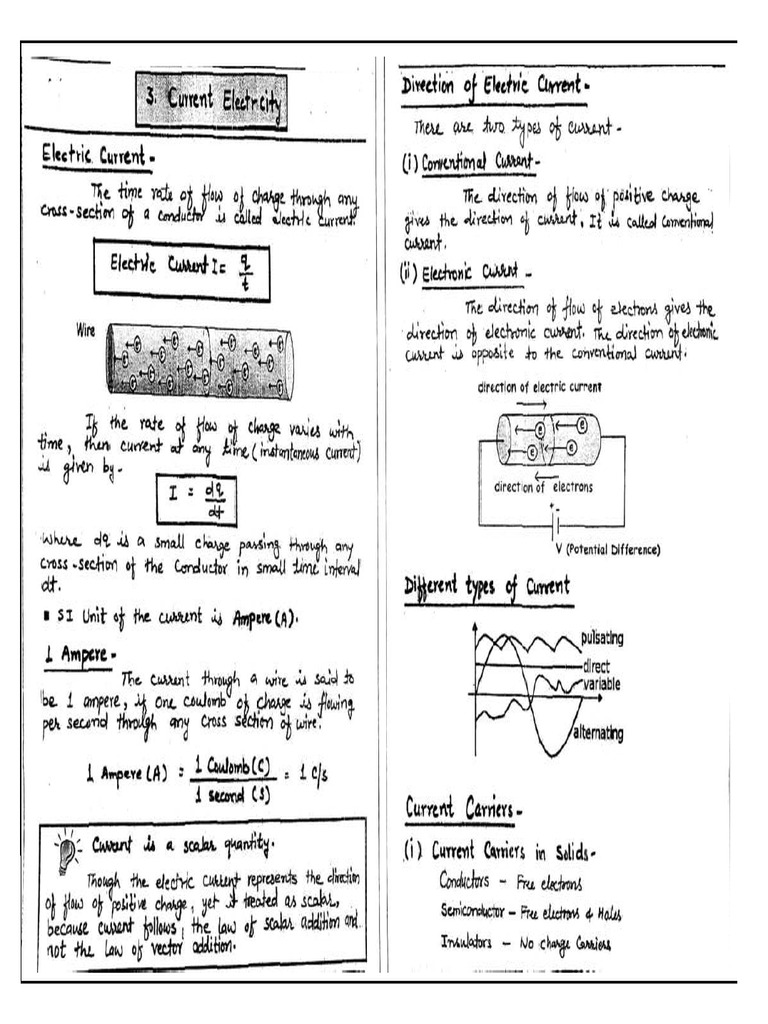 3. Current Electricity
Electric Current -
The time rate of flow of charge through any
cross-section of a conductor is called electric current.
Electric Current I = q/t
Wire
If the rate of flow of charge varies with
time, then current at any time (instantaneous current)
is given by -
I = dq/dt
Where dq is a small charge passing through any
cross-section of the Conductor in small time interval
dt.
▪ SI Unit of the current is Ampere (A).
1 Ampere -
The current through a wire is said to
be 1 ampere, if one coulomb of charge is flowing
per second through any cross section of wire.
1 Ampere (A) = 1 Coulomb (C) / 1 second (S) = 1 C/s
Current is a scalar quantity.
Though the electric current represents the direction
of flow of positive charge, yet it treated as scalar,
because current follows, the law of scalar addition and
not the law of vector addition.
Direction of Electric Current -
There are two types of current -
(i) Conventional Current -
The direction of flow of positive charge
gives the direction of current. It is called conventional
current.
(ii) Electronic Current -
The direction of flow of electrons gives the
direction of electronic current. The direction of electronic
current is opposite to the conventional current.
direction of electric current
e e
e e
direction of electrons
+ -
V (Potential Difference)
Different types of Current
pulsating
direct
variable
alternating
Current Carriers -
(i) Current Carriers in Solids -
Conductors - Free electrons
Semiconductor - Free electrons & Holes
Insulators - No charge Carriers